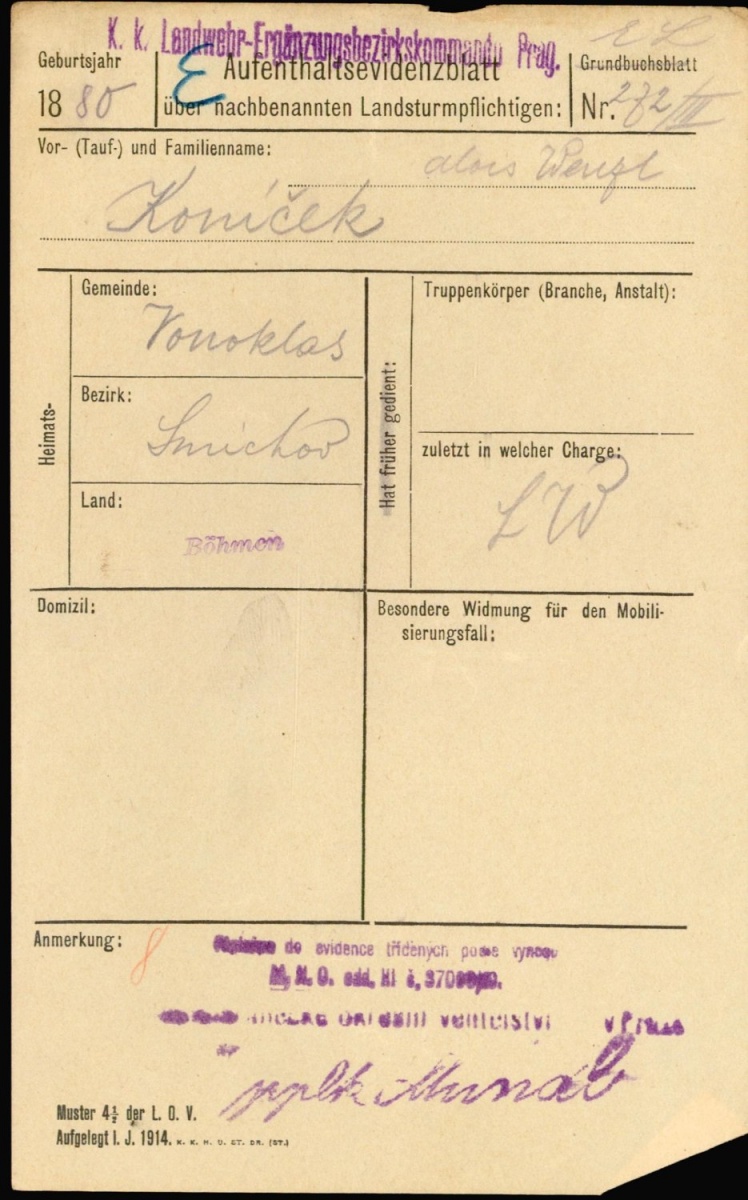 K. k. Landwehr-Ergänzungsbezirkskommando Prag.
Geburtsjahr
1880
E
Aufenthaltsevidenzblatt
über nachbenannten Landsturmpflichtigen:
EL
Grundbuchsblatt
Nr. 272/III
Vor- (Tauf-) und Familienname:
alois Wenzl
Koníček
Heimats-
Gemeinde:
Vonoklas
Bezirk:
Smichov
Land:
Böhmen
Hat früher gedient:
Truppenkörper (Branche, Anstalt):
zuletzt in welcher Charge:
LW
Domizil:
Besondere Widmung für den Mobili-
sierungsfall:
Anmerkung:
8
do evidence tříděných podle vynosu
M. N. O. odd. III č. 
velitelství v Praze
pplk.
Muster 4½ der L. O. V.
Aufgelegt I. J. 1914. K. K. H. U. ST. DR. (ST.)